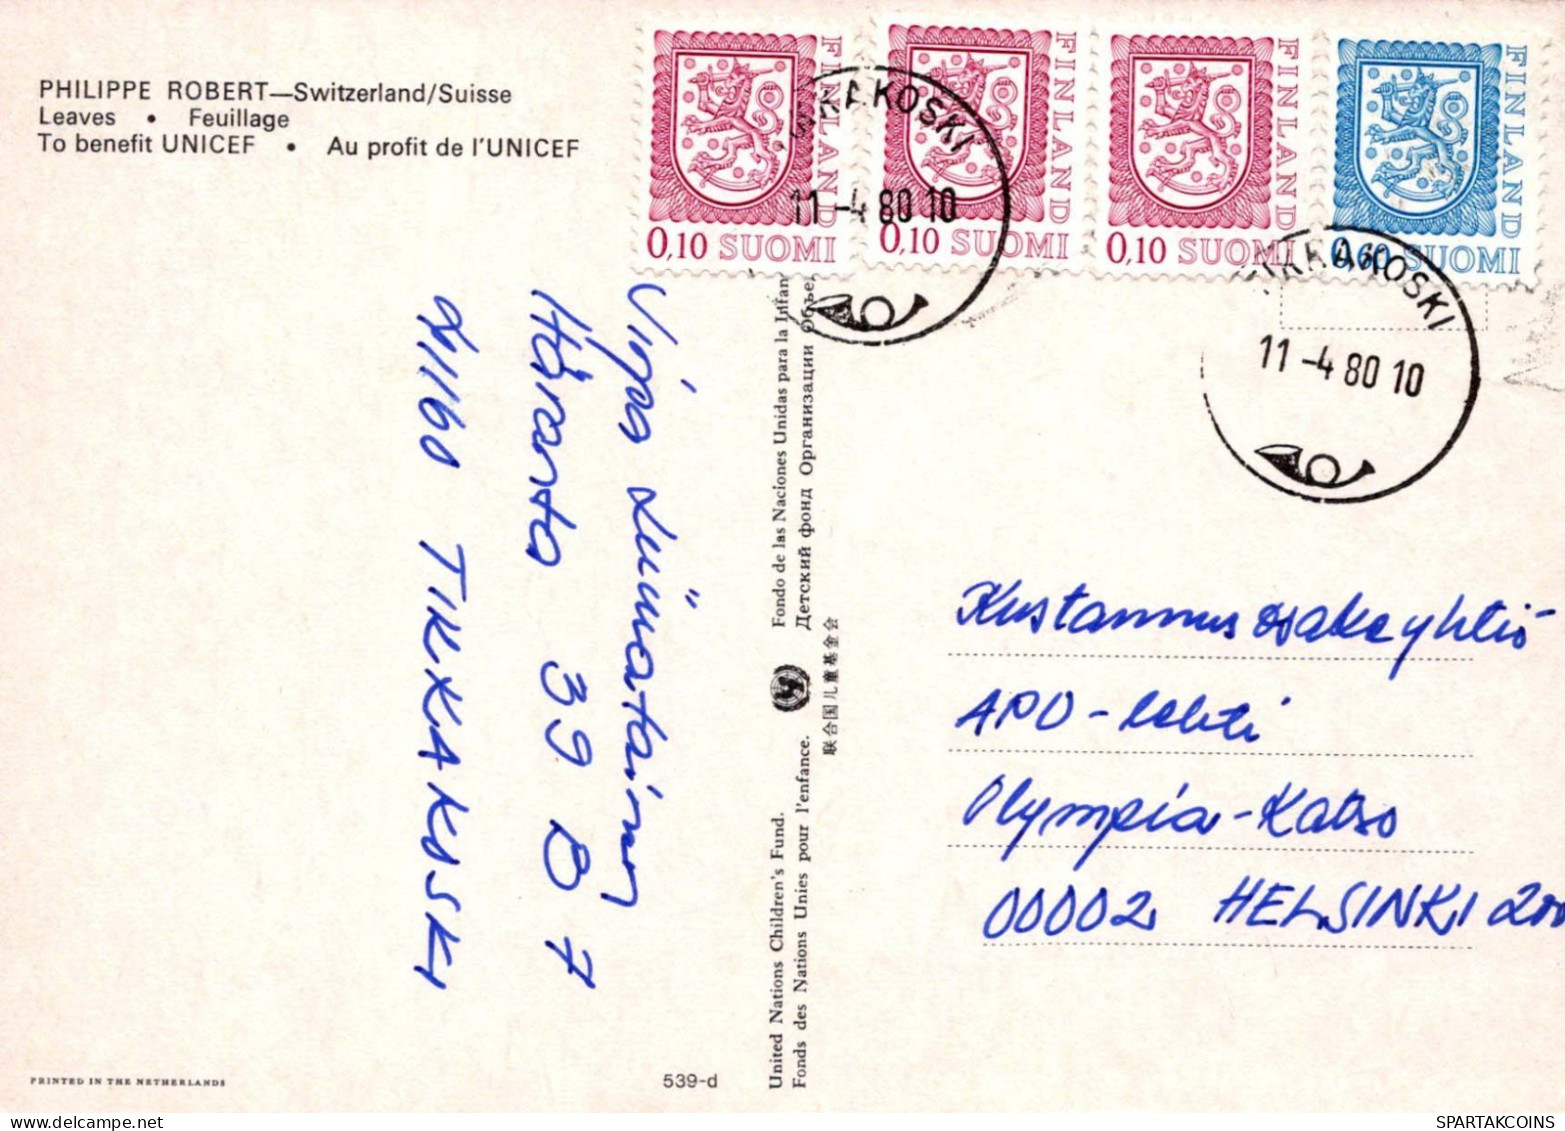 PHILIPPE ROBERT—Switzerland/Suisse
Leaves • Feuillage
To benefit UNICEF • Au profit de l'UNICEF
FINLAND
0,10 SUOMI
FINLAND
0,10 SUOMI
FINLAND
0,10 SUOMI
FINLAND
0,60 SUOMI
KAKOSKI
11-4 80 10
KAKOSKI
11-4 80 10
Viimatainen
39 B 7
41160 TIKKAKOSKI
United Nations Children's Fund. Fondo de las Naciones Unidas para la Infan
Fonds des Nations Unies pour l'enfance. Детский фонд Организации Объе
联合国儿童基金会
Kustannusosakeyhtiö
APU-lehti
Olympia-Katso
00002 HELSINKI 200
PRINTED IN THE NETHERLANDS
539-d
SPARTAKCOINS